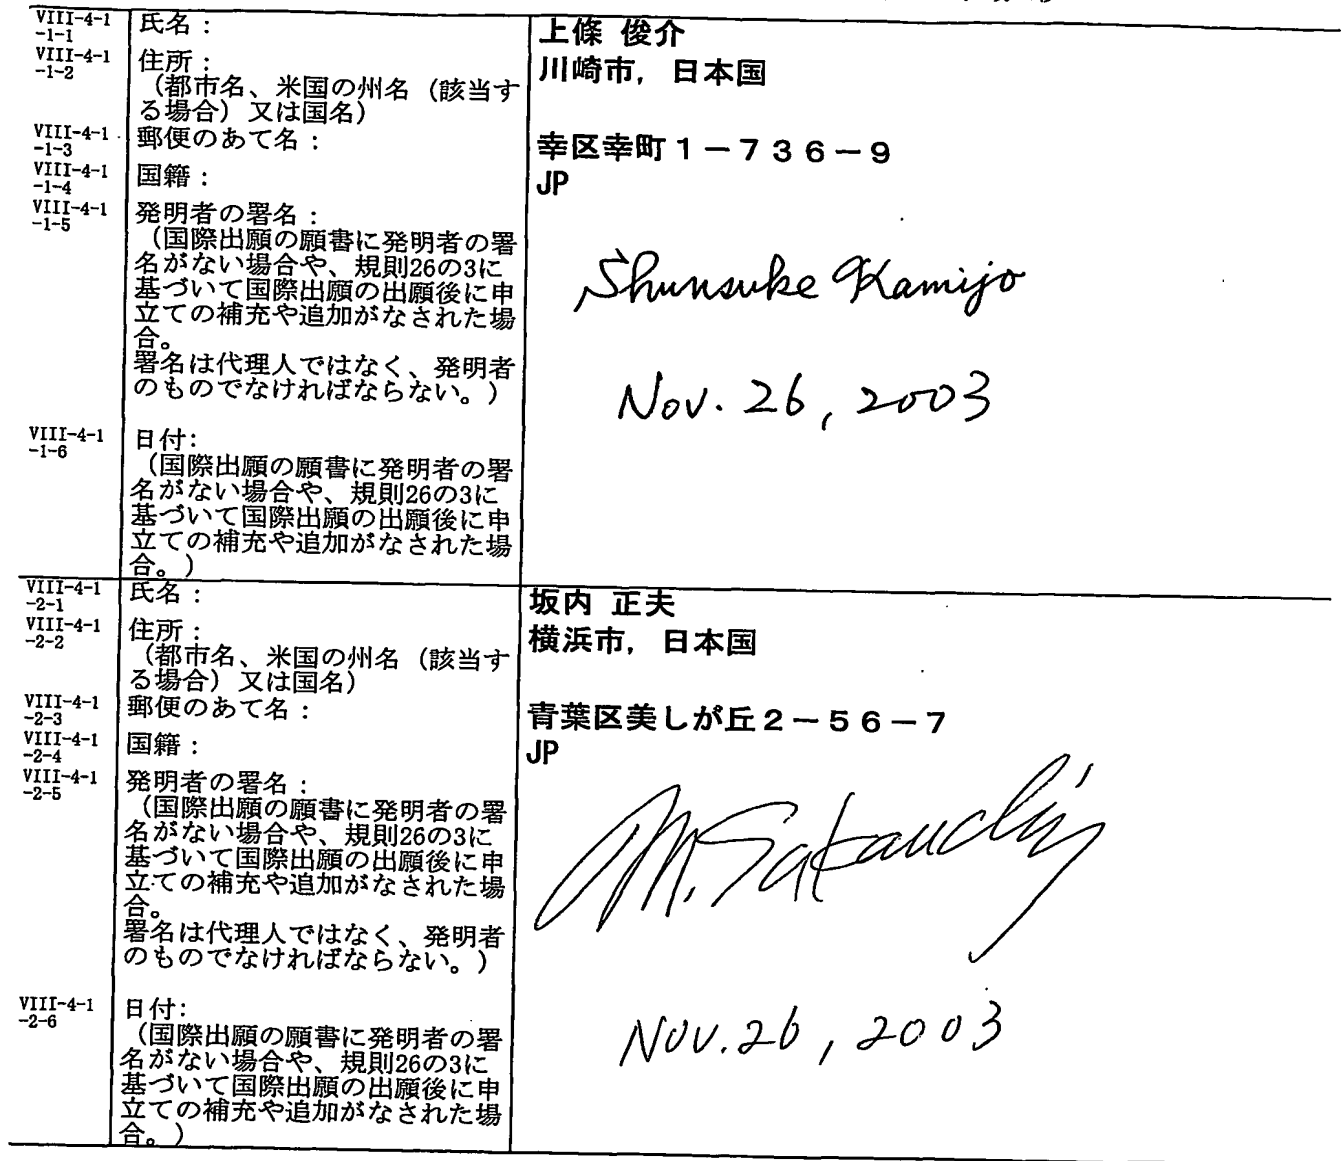 VIII-4-1
-1-1
氏名：
上條 俊介
VIII-4-1
-1-2
住所：
（都市名、米国の州名（該当す
る場合）又は国名）
川崎市，日本国
VIII-4-1
-1-3
郵便のあて名：
幸区幸町１－７３６－９
VIII-4-1
-1-4
国籍：
JP
VIII-4-1
-1-5
発明者の署名：
（国際出願の願書に発明者の署
名がない場合や、規則26の3に
基づいて国際出願の出願後に申
立ての補充や追加がなされた場
合。
署名は代理人ではなく、発明者
のものでなければならない。）
Shunsuke Kamijo
Nov. 26, 2003
VIII-4-1
-1-6
日付：
（国際出願の願書に発明者の署
名がない場合や、規則26の3に
基づいて国際出願の出願後に申
立ての補充や追加がなされた場
合。）
VIII-4-1
-2-1
氏名：
坂内 正夫
VIII-4-1
-2-2
住所：
（都市名、米国の州名（該当す
る場合）又は国名）
横浜市，日本国
VIII-4-1
-2-3
郵便のあて名：
青葉区美しが丘２－５６－７
VIII-4-1
-2-4
国籍：
JP
VIII-4-1
-2-5
発明者の署名：
（国際出願の願書に発明者の署
名がない場合や、規則26の3に
基づいて国際出願の出願後に申
立ての補充や追加がなされた場
合。
署名は代理人ではなく、発明者
のものでなければならない。）
M. Sakauchi
VIII-4-1
-2-6
日付：
（国際出願の願書に発明者の署
名がない場合や、規則26の3に
基づいて国際出願の出願後に申
立ての補充や追加がなされた場
合。）
Nov. 26, 2003